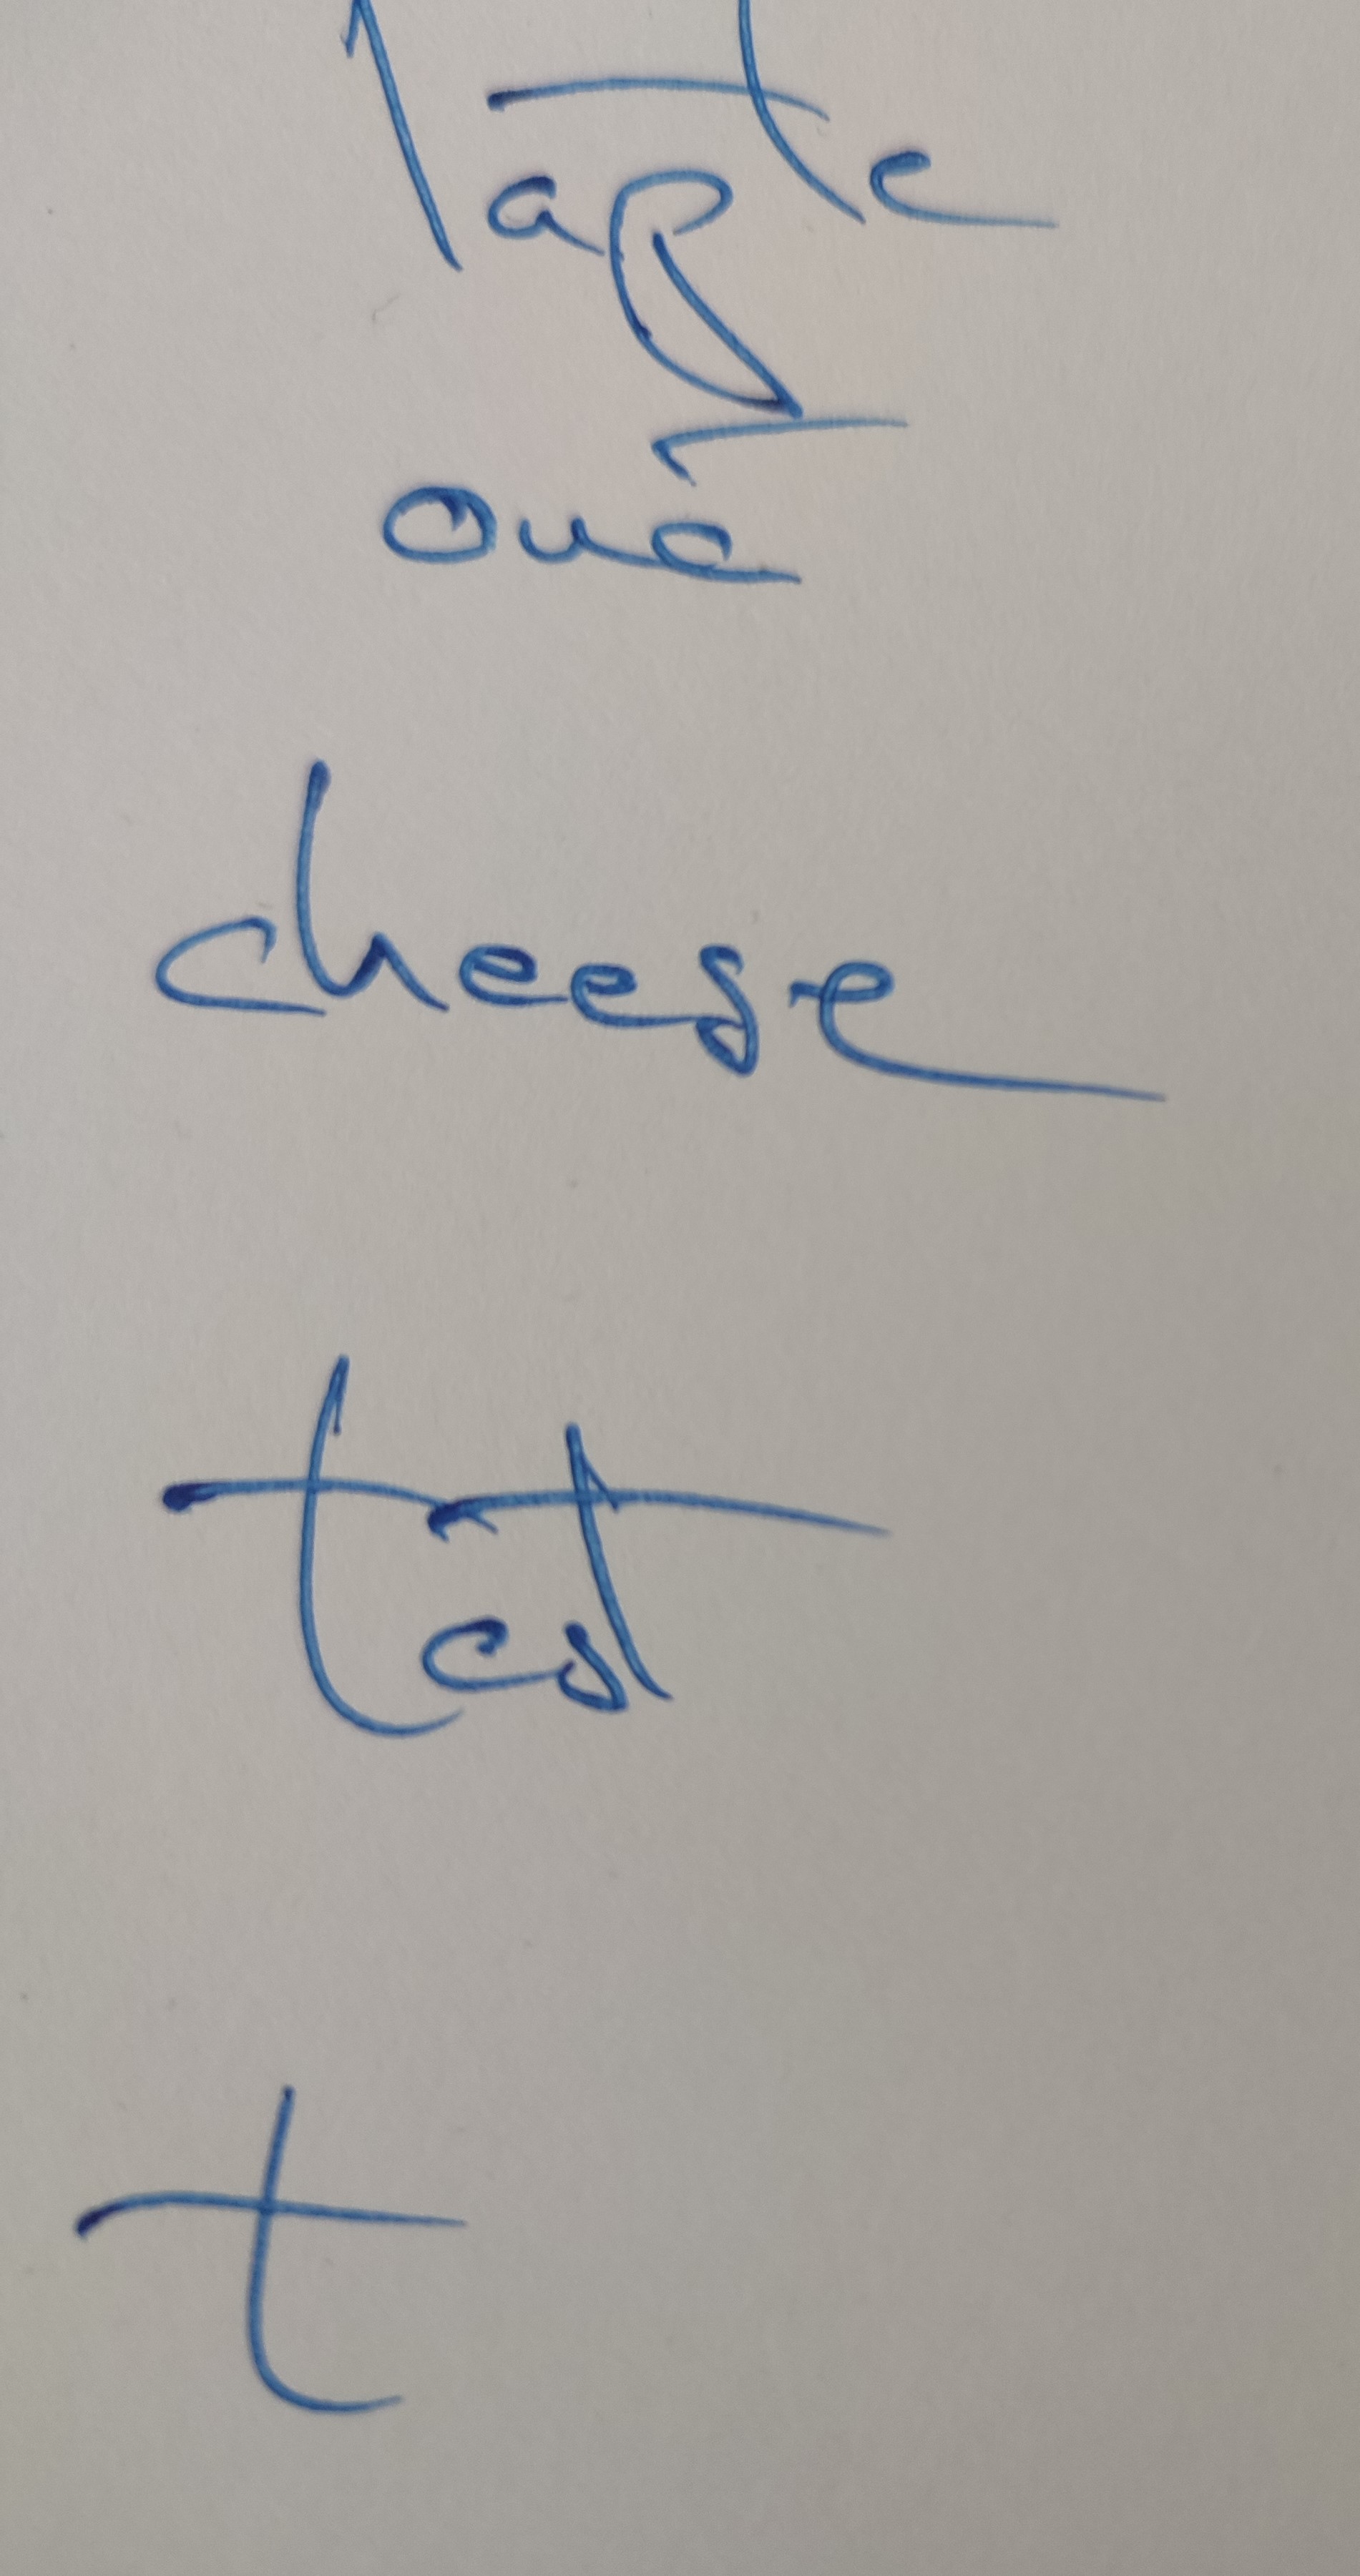 lapte
ouă
cheese
test
t